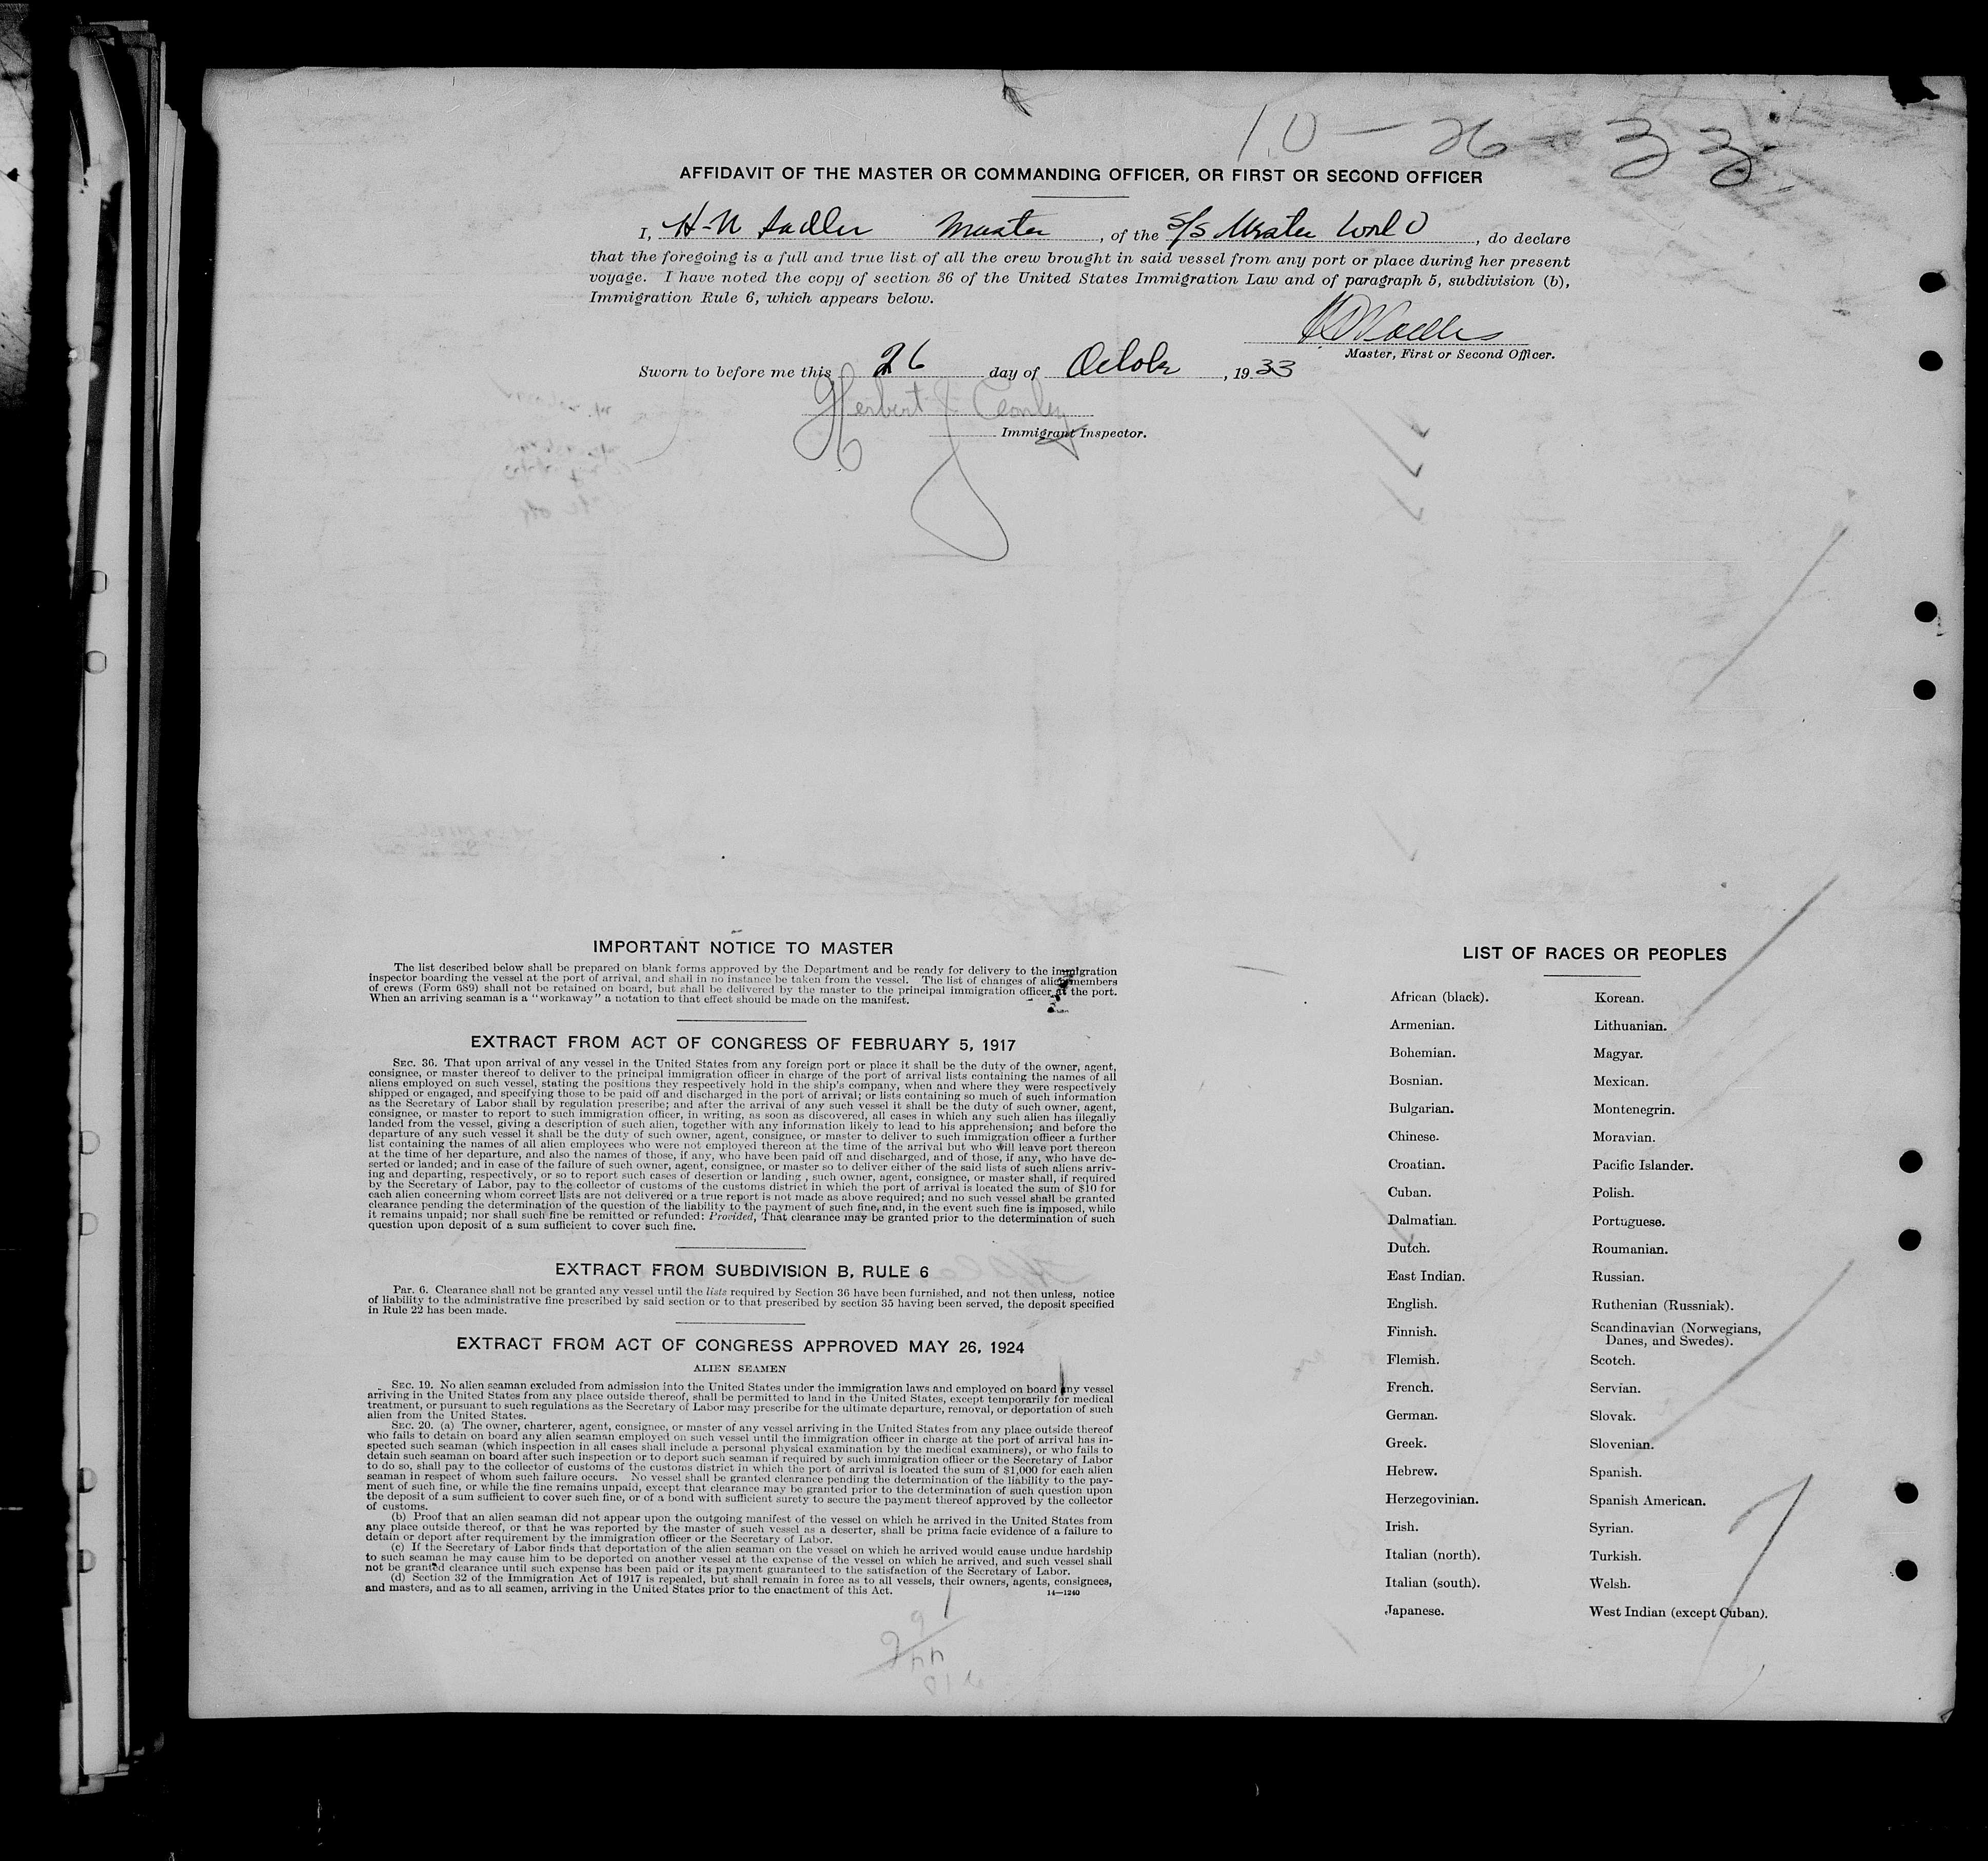 10-26-33
AFFIDAVIT OF THE MASTER OR COMMANDING OFFICER, OR FIRST OR SECOND OFFICER
I, H-N Sadler Master, of the S/S, do declare
that the foregoing is a full and true list of all the crew brought in said vessel from any port or place during her present
voyage. I have noted the copy of section 36 of the United States Immigration Law and of paragraph 5, subdivision (b),
Immigration Rule 6, which appears below.
Master, First or Second Officer.
Sworn to before me this 26 day of October, 1933
Herbert J
Immigrant Inspector.
IMPORTANT NOTICE TO MASTER
The list described below shall be prepared on blank forms approved by the Department and be ready for delivery to the immigration
inspector boarding the vessel at the port of arrival, and shall in no instance be taken from the vessel. The list of changes of alien members
of crews (Form 689) shall not be retained on board, but shall be delivered by the master to the principal immigration officer at the port.
When an arriving seaman is a "workaway" a notation to that effect should be made on the manifest.
EXTRACT FROM ACT OF CONGRESS OF FEBRUARY 5, 1917
SEC. 36. That upon arrival of any vessel in the United States from any foreign port or place it shall be the duty of the owner, agent,
consignee, or master thereof to deliver to the principal immigration officer in charge of the port of arrival lists containing the names of all
aliens employed on such vessel, stating the positions they respectively hold in the ship's company, when and where they were respectively
shipped or engaged, and specifying those to be paid off and discharged in the port of arrival; or lists containing so much of such information
as the Secretary of Labor shall by regulation prescribe; and after the arrival of any such vessel it shall be the duty of such owner, agent,
consignee, or master to report to such immigration officer, in writing, as soon as discovered, all cases in which any such alien has illegally
landed from the vessel, giving a description of such alien, together with any information likely to lead to his apprehension; and before the
departure of any such vessel it shall be the duty of such owner, agent, consignee, or master to deliver to such immigration officer a further
list containing the names of all alien employees who were not employed thereon at the time of the arrival but who will leave port thereon
at the time of her departure, and also the names of those, if any, who have been paid off and discharged, and of those, if any, who have de-
serted or landed; and in case of the failure of such owner, agent, consignee, or master so to deliver either of the said lists of such aliens arriv-
ing and departing, respectively, or so to report such cases of desertion or landing , such owner, agent, consignee, or master shall, if required
by the Secretary of Labor, pay to the collector of customs of the customs district in which the port of arrival is located the sum of $10 for
each alien concerning whom correct lists are not delivered or a true report is not made as above required; and no such vessel shall be granted
clearance pending the determination of the question of the liability to the payment of such fine, and, in the event such fine is imposed, while
it remains unpaid; nor shall such fine be remitted or refunded: Provided, That clearance may be granted prior to the determination of such
question upon deposit of a sum sufficient to cover such fine.
EXTRACT FROM SUBDIVISION B, RULE 6
Par. 6. Clearance shall not be granted any vessel until the lists required by Section 36 have been furnished, and not then unless, notice
of liability to the administrative fine prescribed by said section or to that prescribed by section 35 having been served, the deposit specified
in Rule 22 has been made.
EXTRACT FROM ACT OF CONGRESS APPROVED MAY 26, 1924
ALIEN SEAMEN
SEC. 19. No alien seaman excluded from admission into the United States under the immigration laws and employed on board any vessel
arriving in the United States from any place outside thereof, shall be permitted to land in the United States, except temporarily for medical
treatment, or pursuant to such regulations as the Secretary of Labor may prescribe for the ultimate departure, removal, or deportation of such
alien from the United States.
SEC. 20. (a) The owner, charterer, agent, consignee, or master of any vessel arriving in the United States from any place outside thereof
who fails to detain on board any alien seaman employed on such vessel until the immigration officer in charge at the port of arrival has in-
spected such seaman (which inspection in all cases shall include a personal physical examination by the medical examiners), or who fails to
detain such seaman on board after such inspection or to deport such seaman if required by such immigration officer or the Secretary of Labor
to do so, shall pay to the collector of customs of the customs district in which the port of arrival is located the sum of $1,000 for each alien
seaman in respect of whom such failure occurs. No vessel shall be granted clearance pending the determination of the liability to the pay-
ment of such fine, or while the fine remains unpaid, except that clearance may be granted prior to the determination of such question upon
the deposit of a sum sufficient to cover such fine, or of a bond with sufficient surety to secure the payment thereof approved by the collector
of customs.
(b) Proof that an alien seaman did not appear upon the outgoing manifest of the vessel on which he arrived in the United States from
any place outside thereof, or that he was reported by the master of such vessel as a deserter, shall be prima facie evidence of a failure to
detain or deport after requirement by the immigration officer or the Secretary of Labor.
(c) If the Secretary of Labor finds that deportation of the alien seaman on the vessel on which he arrived would cause undue hardship
to such seaman he may cause him to be deported on another vessel at the expense of the vessel on which he arrived, and such vessel shall
not be granted clearance until such expense has been paid or its payment guaranteed to the satisfaction of the Secretary of Labor.
(d) Section 32 of the Immigration Act of 1917 is repealed, but shall remain in force as to all vessels, their owners, agents, consignees,
and masters, and as to all seamen, arriving in the United States prior to the enactment of this Act.
14—1240
LIST OF RACES OR PEOPLES
African (black).
Armenian.
Bohemian.
Bosnian.
Bulgarian.
Chinese.
Croatian.
Cuban.
Dalmatian.
Dutch.
East Indian.
English.
Finnish.
Flemish.
French.
German.
Greek.
Hebrew.
Herzegovinian.
Irish.
Italian (north).
Italian (south).
Japanese.
Korean.
Lithuanian.
Magyar.
Mexican.
Montenegrin.
Moravian.
Pacific Islander.
Polish.
Portuguese.
Roumanian.
Russian.
Ruthenian (Russniak).
Scandinavian (Norwegians,
Danes, and Swedes).
Scotch.
Servian.
Slovak.
Slovenian.
Spanish.
Spanish American.
Syrian.
Turkish.
Welsh.
West Indian (except Cuban).